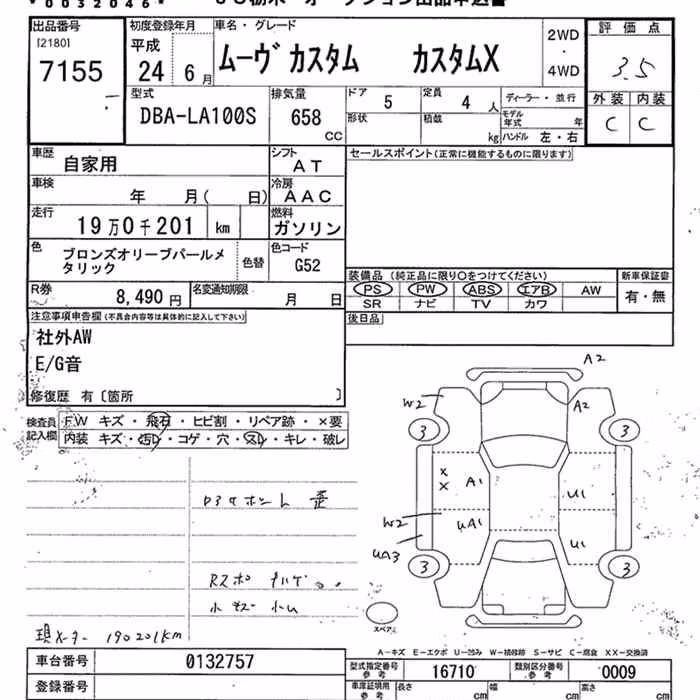 *0032046*
出品番号
[2180]
7155
初度登録年月
平成
24 6月
車名・グレード
ムーヴ カスタム カスタムX
2WD
・
4WD
評価点
3.5
外装 内装
C C
型式
DBA-LA100S
排気量
658
CC
ドア
5
定員
4人
ディーラー・並行
形状
積載
kg
モデル年式 年
ハンドル 左・右
車歴
自家用
シフト
AT
セールスポイント(正常に機能するものに限ります)
車検
年 月( 日)
冷房
AAC
走行
19万0千201 km
燃料
ガソリン
色
ブロンズオリーブパールメ
タリック
色替
色コード
G52
装備品 (純正品に限り○をつけてください)
新車保証書
PS PW ABS エアB AW
有・無
SR ナビ TV カワ
R券
8,490円
名変通知期限
月 日
後日品
注意事項申告欄(不具合内容等は具体的に記入して下さい)
社外AW
E/G音
修復歴 有〔箇所 〕
検査員
記入欄
FW キズ・飛石・ヒビ割・リペア跡・×要
内装 キズ・汚レ・コゲ・穴・スレ・キレ・破レ
A2
W2
A2
3 3
X
X
A1
U1
W2
UA1
U1
UA3
3 3
スペア
歪
小キズ 小U
現メーター 190201km
A-キズ E-エクボ U-凹み W-補修跡 S-サビ C-腐食 XX-交換済
車台番号
0132757
型式指定番号
参考
16710
類別区分番号
参考
0009
登録番号
車庫証明用
参考
長さ cm
幅 cm
高さ cm